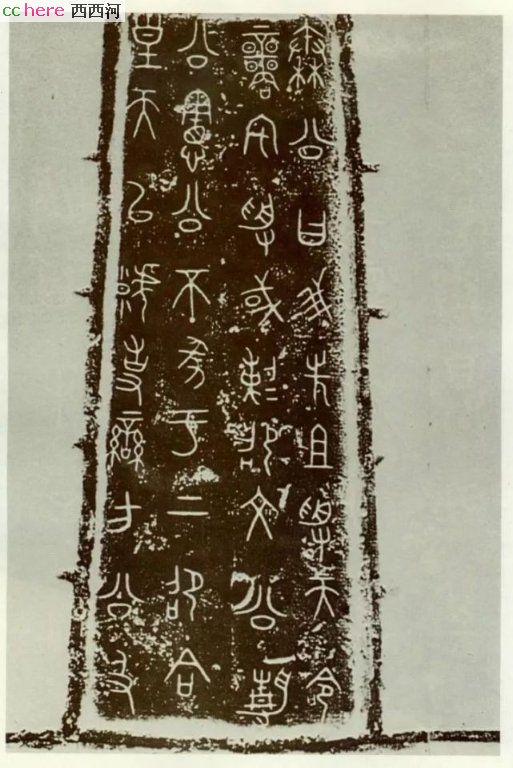 cchere 西西河
秦公曰我先且受天令
商宅受或剌=卲文公靜
公憲公不彖于上卲合
皇天以虩事䜌方公及